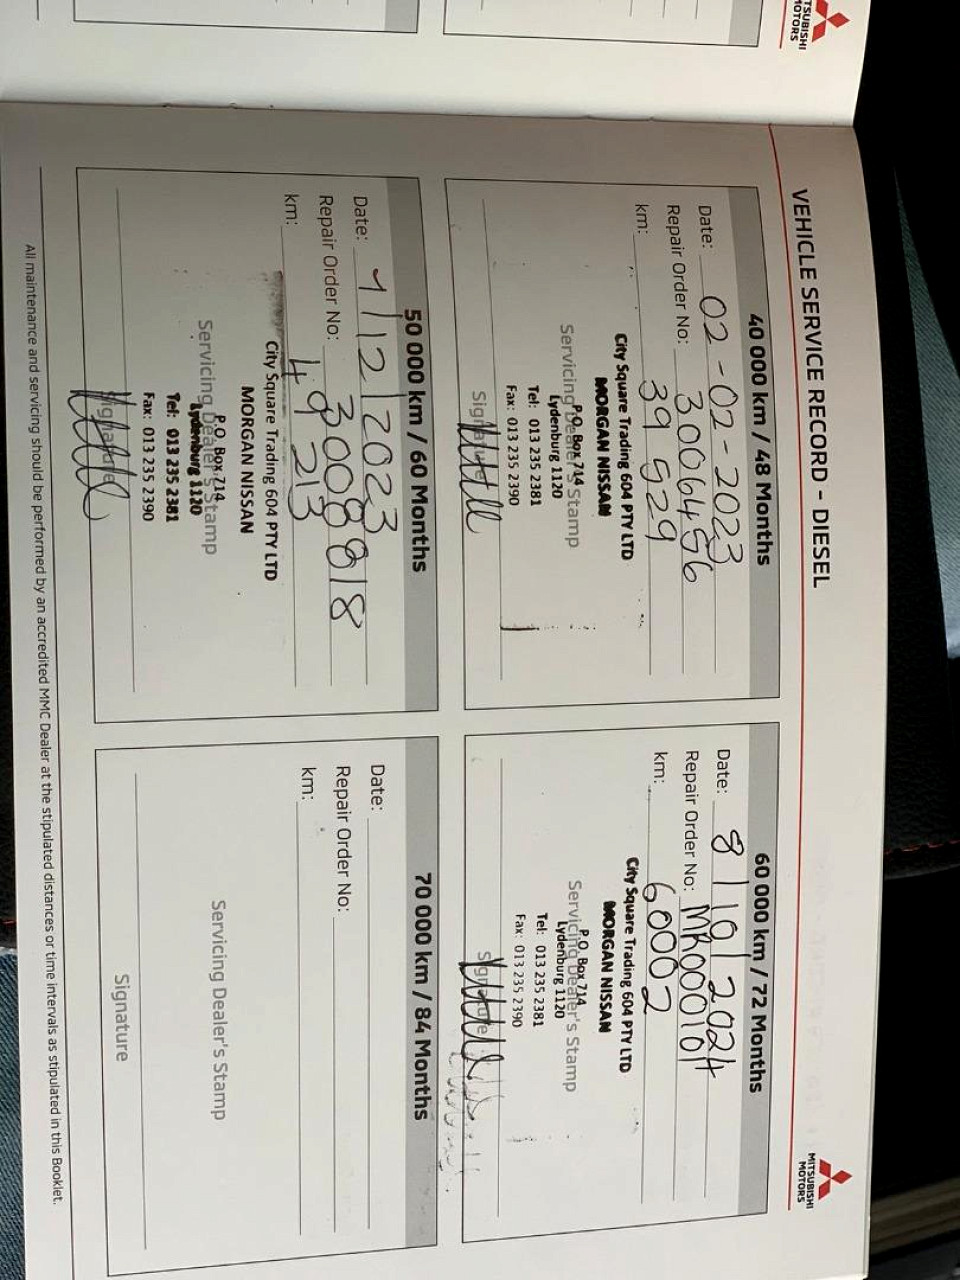 MITSUBISHI
MOTORS
VEHICLE SERVICE RECORD – DIESEL
MITSUBISHI
MOTORS
40 000 km / 48 Months
Date: 02-02-2023
Repair Order No: 3006456
km: 39 529
City Square Trading 604 PTY LTD
MORGAN NISSAN
P.O. Box 714
Servicing Dealer's Stamp
Lydenburg 1120
Tel: 013 235 2381
Fax: 013 235 2390
Signature
60 000 km / 72 Months
Date: 8/10/2024
Repair Order No: MR000101
km: 60002
City Square Trading 604 PTY LTD
MORGAN NISSAN
P.O. Box 714
Servicing Dealer's Stamp
Lydenburg 1120
Tel: 013 235 2381
Fax: 013 235 2390
Signature
50 000 km / 60 Months
Date: 1/12/2023
Repair Order No: 3008818
km: 49 213
City Square Trading 604 PTY LTD
MORGAN NISSAN
P.O. Box 714
Servicing Dealer's Stamp
Lydenburg 1120
Tel: 013 235 2381
Fax: 013 235 2390
Signature
70 000 km / 84 Months
Date:
Repair Order No:
km:
Servicing Dealer's Stamp
Signature
All maintenance and servicing should be performed by an accredited MMC Dealer at the stipulated distances or time intervals as stipulated in this Booklet.